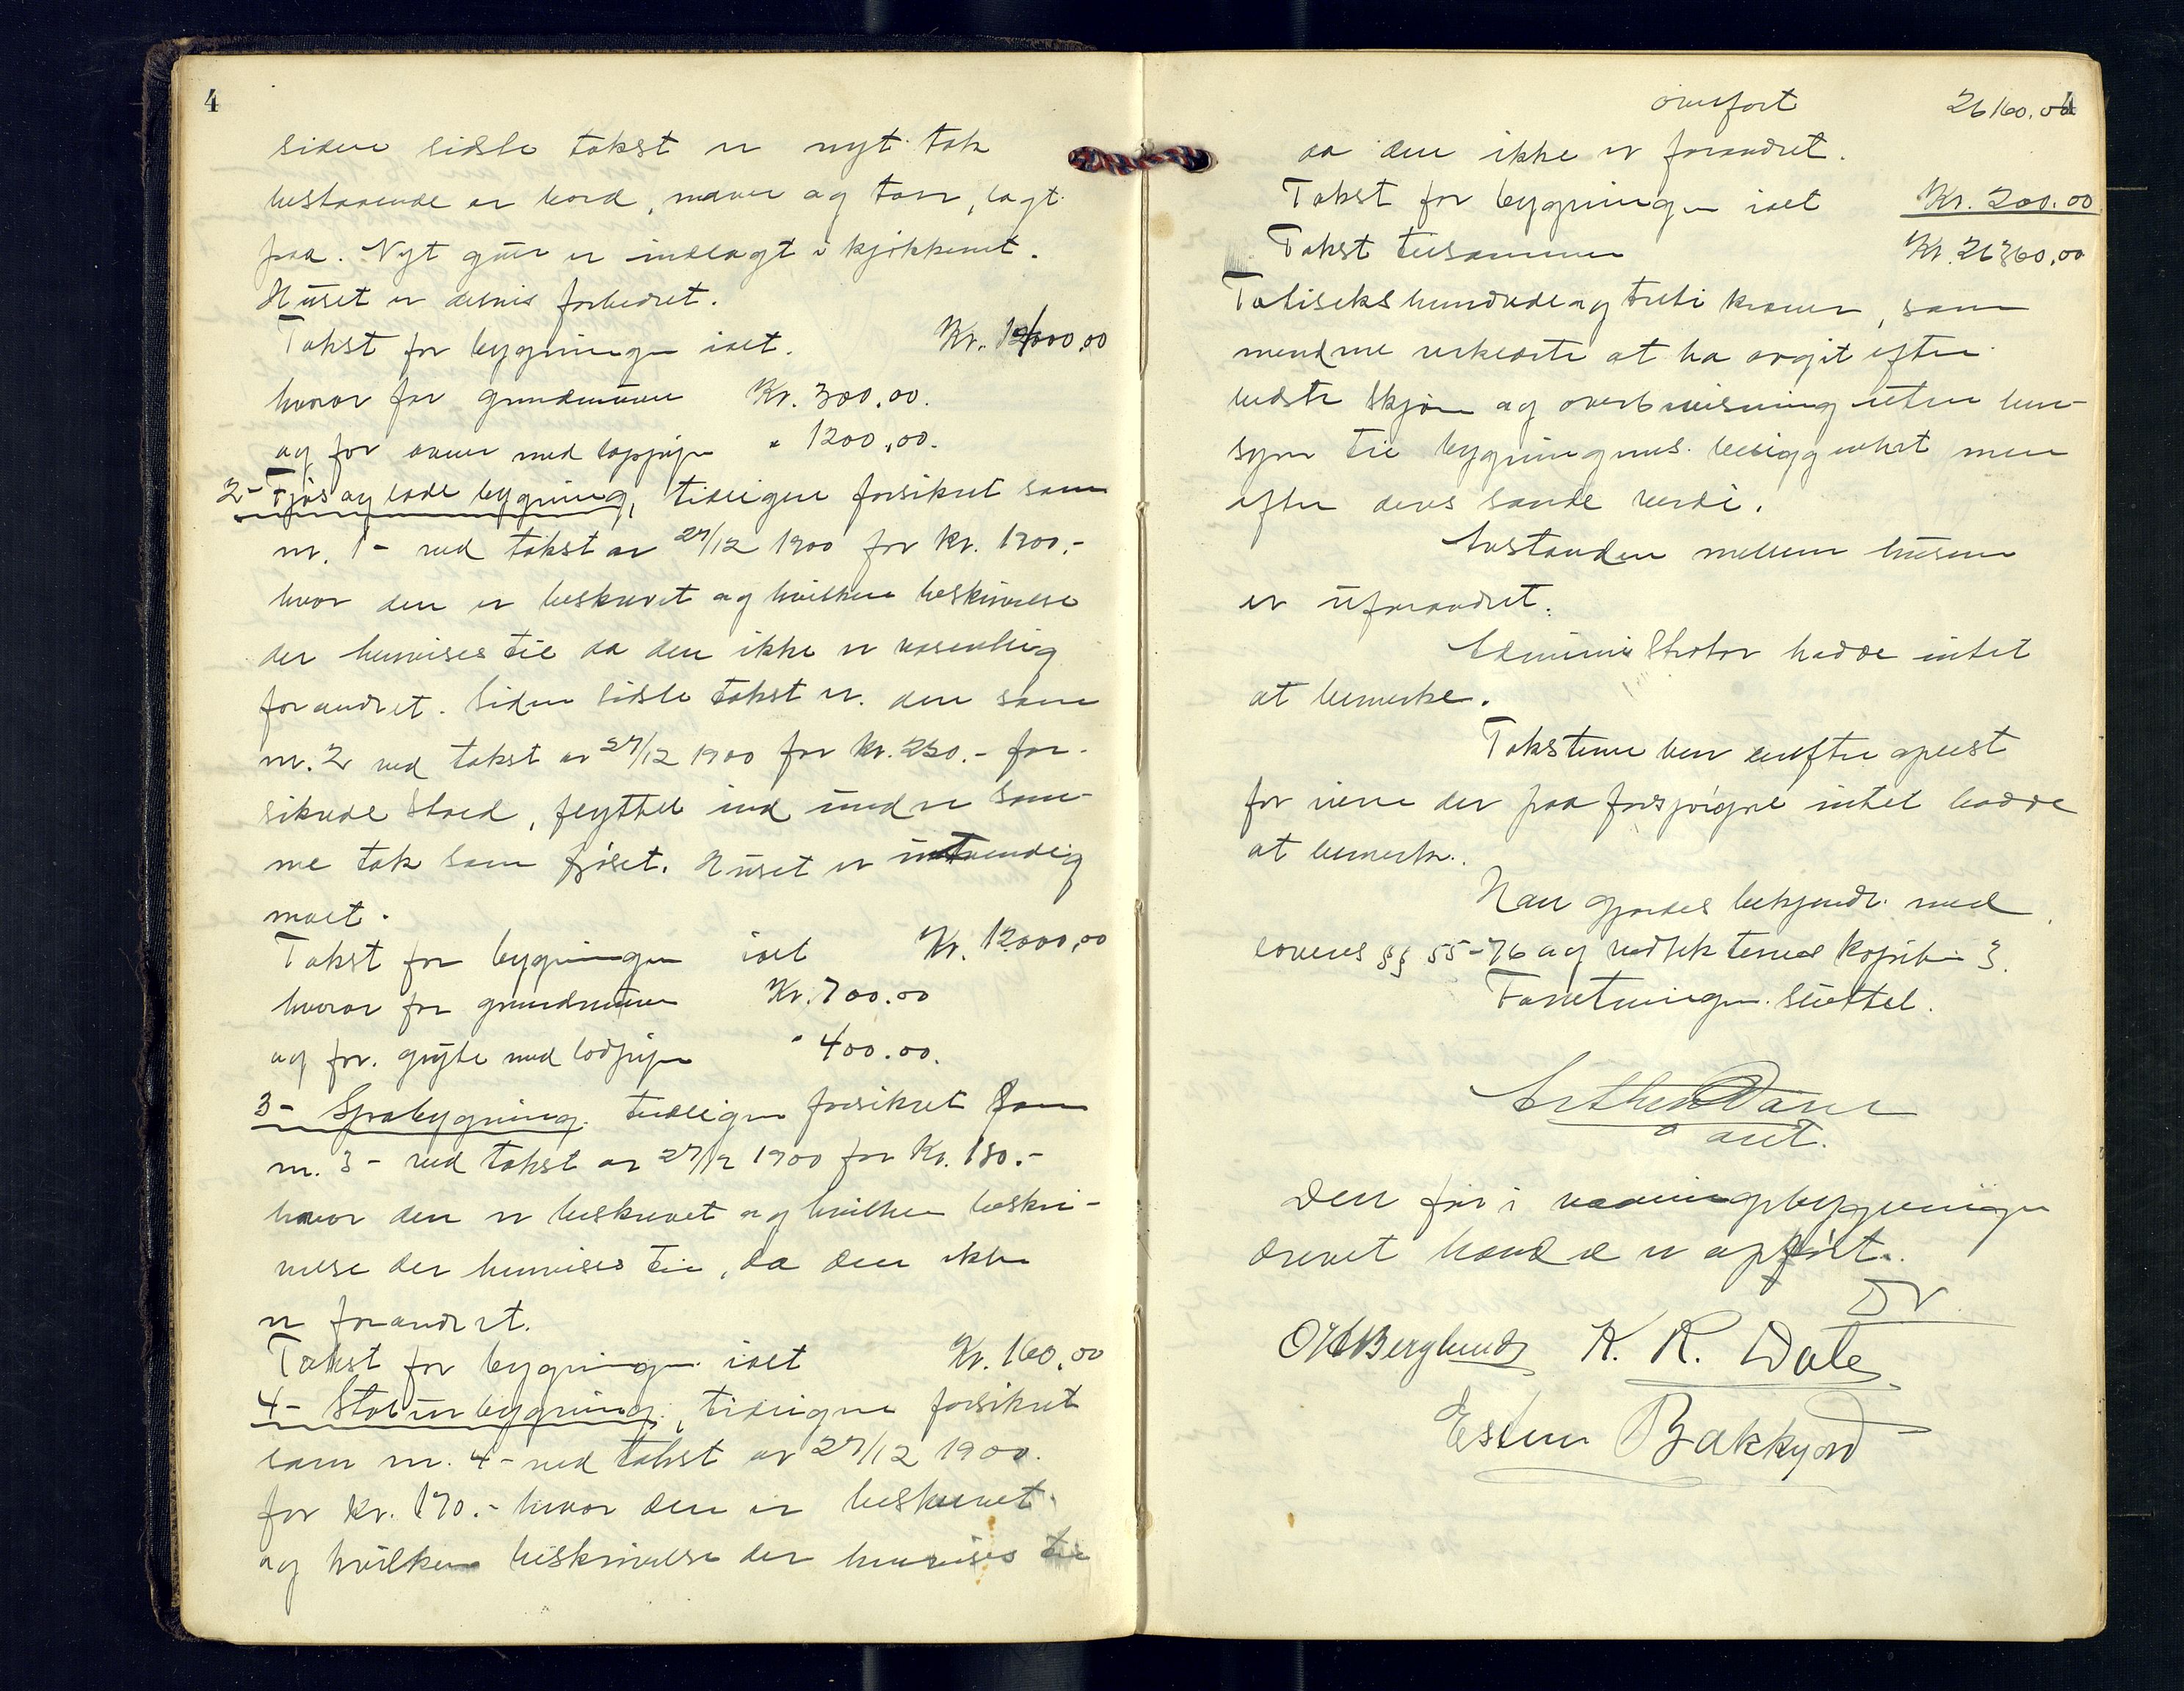 4
siden sidste takst er nyt tak
bestaaende av bord, næver og torv, lagt
paa. Nyt gulv er indlagt i kjøkkenet.
Huset er delvis forbedret.
Takst for bygningen ialt. Kr. 14000,00
hvorav for grundmuren Kr. 300.00.
og for ovner med 1200,00.
2- Fjøs og ladebygning, tidligere forsikret som
nr. 1- ved takst av 27/12 1900 for kr. 1900.-
hvor den er beskrevet og hvilken beskrivelse
der henvises til da den ikke er væsentlig
forandret. Siden sidste takst er den som
nr. 2 ved takst av 27/12 1900 for kr. 250.- for-
sikrede stald, flyttet ind under sam-
me tak som fjøset. Huset er utvendig
malt.
Takst for bygningen ialt Kr. 12000,00
hvorav for grundmuren Kr. 700.00
og for gryte med 400.00.
3- bygning. tidligere forsikret som
nr. 3- ved takst av 27/12 1900 for Kr. 180.-
hvor den er beskrevet og hvilken beskri-
velse der henvises til, da den ikke
er forandret.
Takst for bygningen ialt Kr. 160,00
4- Staburbygning, tidligere forsikret
som nr. 4- ved takst av 27/12 1900.
for kr. 170.- hvor den er beskrevet
og hvilken beskrivelse der henvises til
overført 26160.00
4
da den ikke er forandret.
Takst for bygningen ialt Kr. 200.00
Takst tilsammen Kr. 26360,00
kroner, som
mendene erklærte at ha avgit efter
bedste skjøn og overbevisning uten hen-
syn til bygningernes beliggenhet men
efter deres sande verdi.
Avstanden mellem husene
er uforandret.
Administrator hadde intet
at bemerke.
Taksten blev derefter oplest
for eieren der paa forespørgsel intet hadde
at bemerke.
Han gjordes bekjendt med
lovens §§ 55-76 og vedtekternes kapitel 3.
Forretningen sluttet.
Den før i vaaningsbygningen
drevet handel er ophørt.
Berglund K. R. Dale
Esten Bakkjord